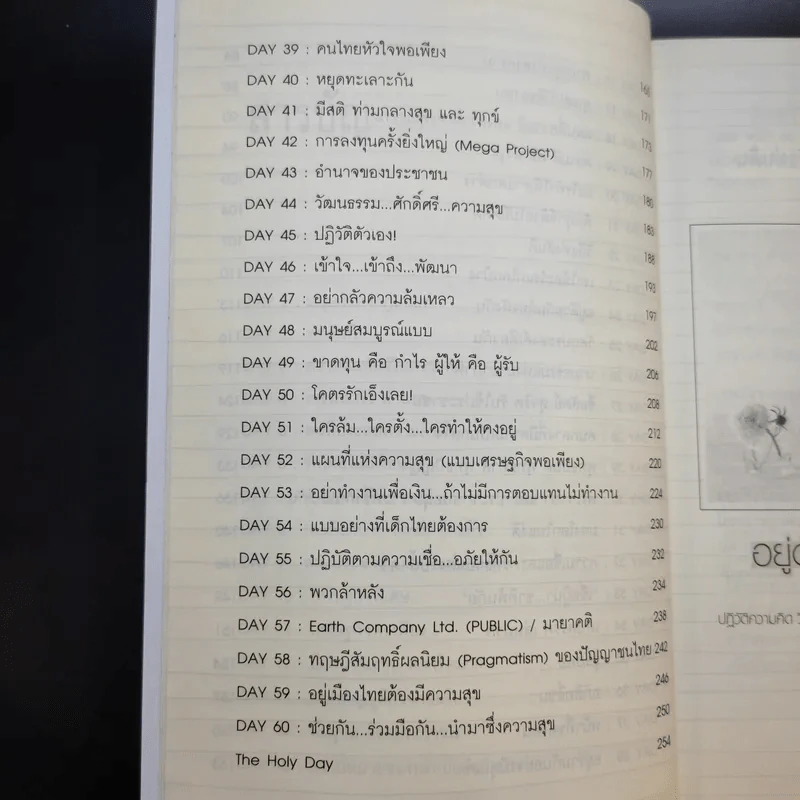 DAY 39 : คนไทยหัวใจพอเพียง 166
DAY 40 : หยุดทะเลาะกัน 171
DAY 41 : มีสติ ท่ามกลางสุข และ ทุกข์ 173
DAY 42 : การลงทุนครั้งยิ่งใหญ่ (Mega Project) 177
DAY 43 : อำนาจของประชาชน 180
DAY 44 : วัฒนธรรม...ศักดิ์ศรี...ความสุข 183
DAY 45 : ปฏิวัติตัวเอง! 188
DAY 46 : เข้าใจ...เข้าถึง...พัฒนา 193
DAY 47 : อย่ากลัวความล้มเหลว 197
DAY 48 : มนุษย์สมบูรณ์แบบ 202
DAY 49 : ขาดทุน คือ กำไร ผู้ให้ คือ ผู้รับ 206
DAY 50 : โคตรรักเอ็งเลย! 208
DAY 51 : ใครล้ม...ใครตั้ง...ใครทำให้คงอยู่ 212
DAY 52 : แผนที่แห่งความสุข (แบบเศรษฐกิจพอเพียง) 220
DAY 53 : อย่าทำงานเพื่อเงิน...ถ้าไม่มีการตอบแทนไม่ทำงาน 224
DAY 54 : แบบอย่างที่เด็กไทยต้องการ 230
DAY 55 : ปฏิบัติตามความเชื่อ...อภัยให้กัน 232
DAY 56 : พวกล้าหลัง 234
DAY 57 : Earth Company Ltd. (PUBLIC) / มายาคติ 238
DAY 58 : ทฤษฎีสัมฤทธิ์ผลนิยม (Pragmatism) ของปัญญาชนไทย 242
DAY 59 : อยู่เมืองไทยต้องมีความสุข 246
DAY 60 : ช่วยกัน...ร่วมมือกัน...นำมาซึ่งความสุข 250
The Holy Day 254
อยู่
ปฏิวัติความคิด